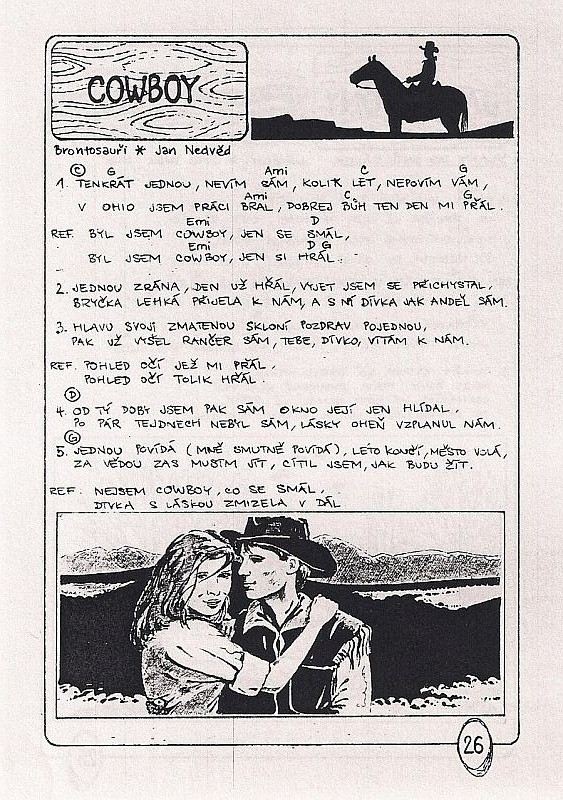 COWBOY
Brontosauři * Jan Nedvěd
C G Ami C G
1. TENKRÁT JEDNOU, NEVÍM SÁM, KOLIK LET, NEPOVÍM VÁM,
Ami C G
V OHIO JSEM PRÁCI BRAL, DOBREJ BŮH TEN DEN MI PŘÁL.
Emi D
REF. BYL JSEM COWBOY, JEN SE SMÁL,
Emi D G
BYL JSEM COWBOY, JEN SI HRÁL.
2. JEDNOU ZRÁNA, DEN UŽ HŘÁL, VYJET JSEM SE PŘICHYSTAL,
BRYČKA LEHKÁ PŘIJELA K NÁM, A S NÍ DÍVKA JAK ANDĚL SÁM.
3. HLAVU SVOJÍ ZMATENOU SKLONÍ POZDRAV POJEDNOU,
PAK UŽ VYŠEL RANČER SÁM, TEBE, DÍVKO, VÍTÁM K NÁM.
REF. POHLED OČÍ JEŽ MI PŘÁL,
POHLED OČÍ TOLIK HŘÁL.
D
4. OD TÝ DOBY JSEM PAK SÁM OKNO JEJÍ JEN HLÍDAL,
PO PÁR TEJDNECH NEBYL SÁM, LÁSKY OHEŇ VZPLANUL NÁM.
G
5. JEDNOU POVÍDÁ (MNĚ SMUTNĚ POVÍDÁ), LÉTO KONČÍ, MĚSTO VOLÁ,
ZA VĚDOU ZAS MUSÍM JÍT, CÍTIL JSEM, JAK BUDU ŽÍT.
REF. NEJSEM COWBOY, CO SE SMÁL,
DÍVKA S LÁSKOU ZMIZELA V DÁL
26